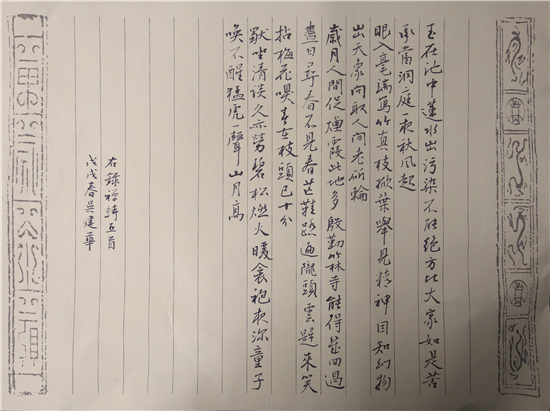 玉在池中蓮水出污染不能絕方比大家如是若
承當洞庭一夜秋風起
眼入毫端寫竹真枝掀葉舉見精神因知幻物
出天象問取人間老斫輪
歲月人間促煙霞此地多殷勤竹林寺能得幾回過
盡日尋春不見春芒鞋踏遍隴頭雲歸來笑
拈梅花嗅春在枝頭已十分
默坐清談久亦勞碧松燃火暖衾袍夜深童子
喚不醒猛虎一聲山月高
右錄禪詩五首
戊戌春吳建華